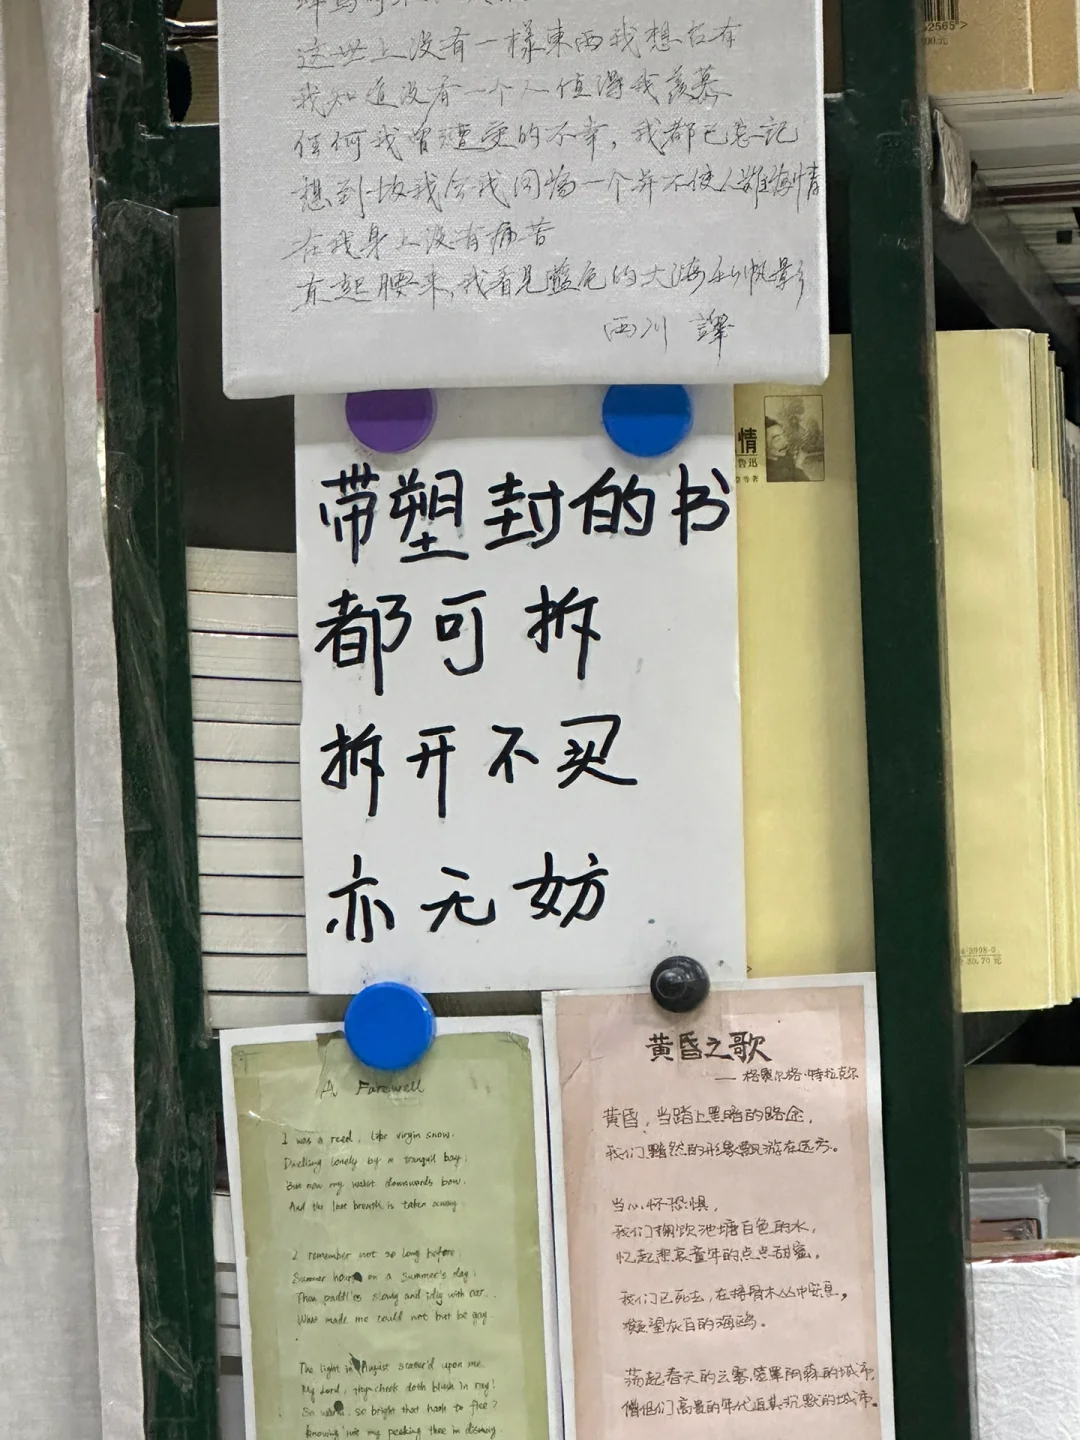 这世上没有一樣東西我想占有
我知道没有一个人值得我羡慕
任何我曾遭受的不幸，我都已忘记
想到故我今我同为一个并不使人難為情
在我身上没有痛苦
直起腰来，我看見藍色的大海和帆影
西川 譯
带塑封的书
都可拆
拆开不买
亦无妨
情
鲁迅
A Farewell
I was a reed, like virgin snow.
Dwelling lonely by a tranquil bay;
But now my waist downwards bow.
And the last breath is taken away.
I remember not so long before,
Summer hours on a summer's day;
Then paddles slowly and idly with oar.
What made me could not but be gay.
The light in August scatter'd upon me.
My Lord, thy cheek doth blush in ray!
So warm, so bright that hath to flee?
Knowing not my peeking thee in dismay.
黄昏之歌
—— 格奥尔格·特拉克尔
黄昏，当踏上黑暗的路途，
我们黯然的形象飘游在远方。
当心怀恐惧，
我们掬饮池塘白色的水，
忆起悲哀童年的点点甜蜜。
我们已死去，在接骨木丛中安息，
凝望灰白的海鸥。
荡起春天的云雾，笼罩阴森的城市，
僧侣们高贵的年代返其沉默的城市。